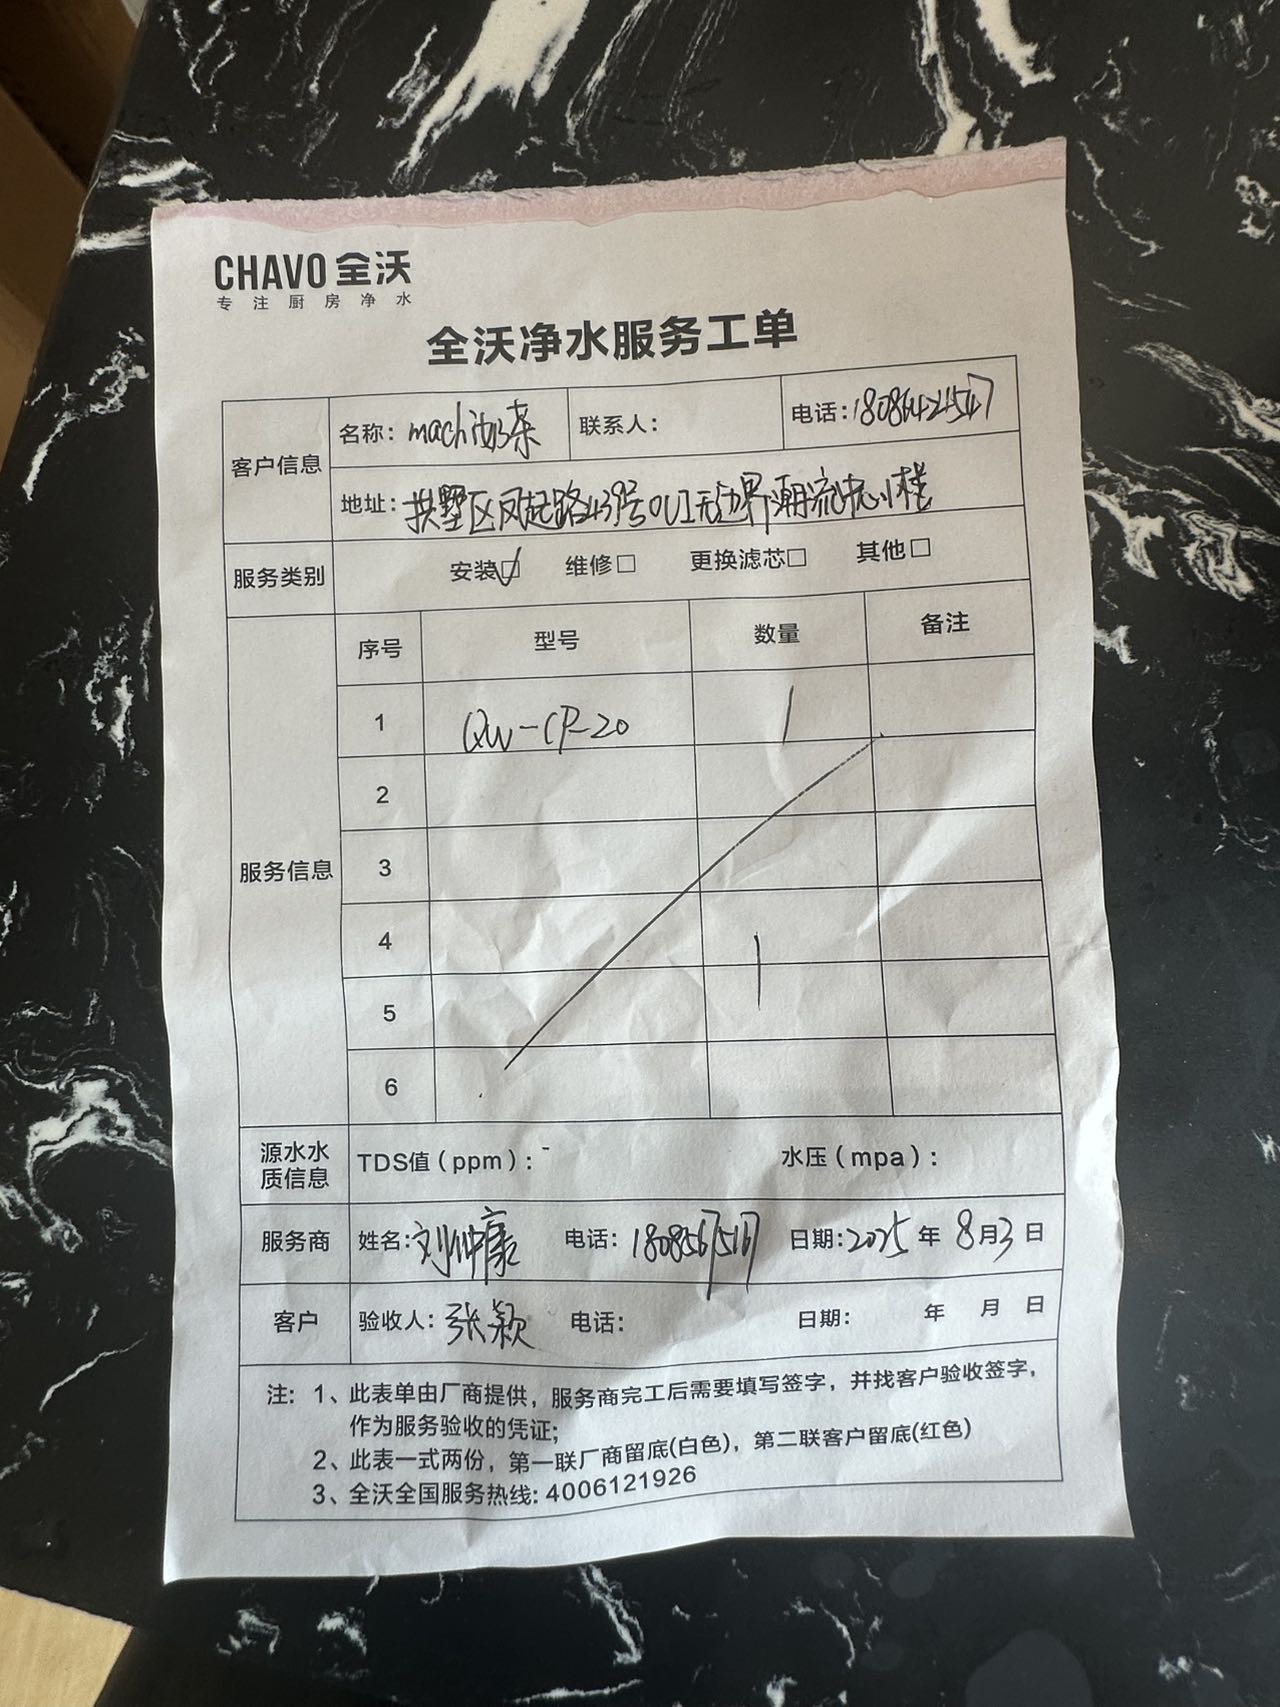 CHAVO 全沃
专注厨房净水
全沃净水服务工单
客户信息
名称: machi奶茶 联系人: 电话:18086421547
地址: 拱墅区凤起路439号OUI无边界潮流中心1楼
服务类别 安装☑ 维修□ 更换滤芯□ 其他□
服务信息
序号 型号 数量 备注
1 QW-CP-20 1
2
3
4
5
6
源水水质信息 TDS值(ppm): 水压(mpa):
服务商 姓名:刘仲康 电话: 日期:2025年8月3日
客户 验收人:张颖 电话: 日期: 年 月 日
注: 1、此表单由厂商提供，服务商完工后需要填写签字，并找客户验收签字，
作为服务验收的凭证;
2、此表一式两份，第一联厂商留底(白色)，第二联客户留底(红色)
3、全沃全国服务热线: 4006121926